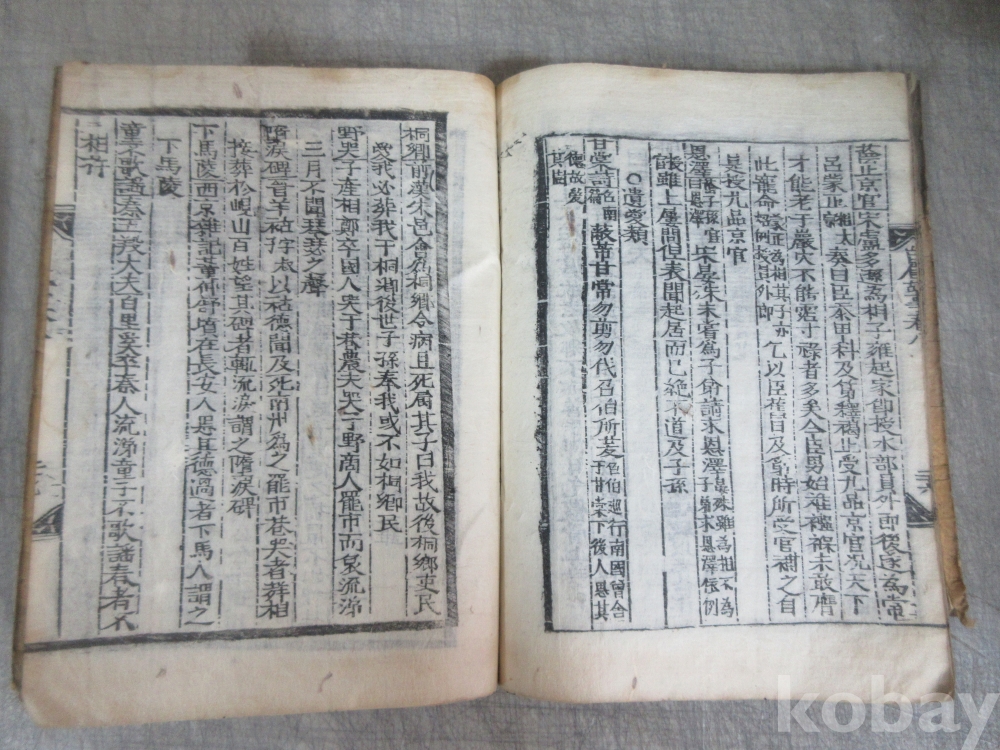 蔭止京官宋盧多遜為相子雍起家即授水部員外郎後遂為常
呂蒙正為相太奏曰臣忝甲科及第釋褐止受九品京官況天下
才能老于巖穴不能霑寸祿者多矣今臣男始離襁褓未敢膺
此寵命 乞以臣釋褐時所受官補之自
是授九品京官
恩澤 宋晏殊未嘗為子弟求恩澤
餘雖上屢問但表聞起居而已絕不道及子孫
○遺愛類
甘棠詩召南蔽芾甘棠勿剪勿伐召伯所茇召伯巡行南國曾舍于甘棠下後人思其
德故愛
其樹
桐鄉前漢朱邑會為桐鄉令病且死屬其子曰我故後桐鄉吏民
愛我必葬我于桐鄉後世子孫奉我或不如桐鄉民
三月不聞琴瑟之聲
野哭子產相鄭卒國人哭于巷農夫哭于野商人罷市而哀流涕
墮淚碑晉羊祜字太以祜德聞及死南州為之罷市巷哭者葬相
接葬於峴山百姓望其碑者輒流淚謂之墮淚碑
下馬陵西京雜記董仲舒墳在長安人思其德過者下馬人謂之
下馬陵
童子不歌謠秦五羖大夫百里奚卒秦人流涕童子不歌謠舂者不
相杵
kobay